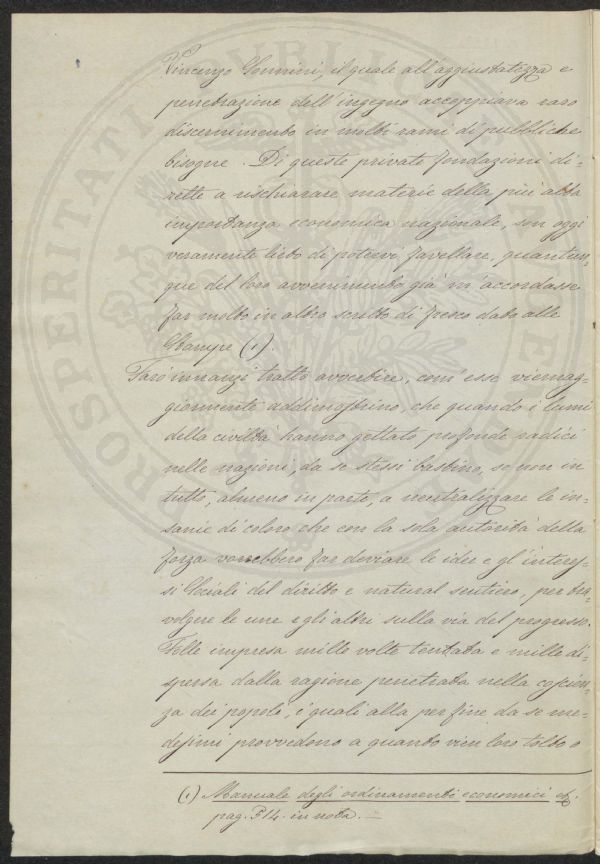 Vincenzo Sannini, il quale all'aggiustatezza e
penetrazione dell'ingegno accoppiava raro
discernimento in molti rami di pubbliche
bisogne. Di queste private fondazioni di-
rette a rischiarare materie della più alta
importanza economica nazionale, son oggi
veramente lieto di potervi favellare, quantun-
que del loro avvenimento già m'accordasse
far molto in altro scritto di fresco dato alle
Stampe (1)
Farò innanzi tratto avvertire, com'esse viemag-
giormente addimostrino, che quando i lumi
della civiltà hanno gettato profonde radici
nelle nazioni, da se stessi bastino, se non in
tutto, almeno in parte, a neutralizzare le in-
sanie di coloro che con la sola autorità della
forza vorrebbero far deviare le idee e gl'interes-
si Sociali del diritto e natural sentiero, per tra-
volgere le une e gli altri sulla via del progresso.
Folle impresa mille volte tentata e mille di-
spersa dalla ragione penetrata nella coscien-
za dei popoli, i quali alla per fine da se me-
desimi provvedono a quanto vien loro tolto o
(1) Manuale degli ordinamenti economici et.
pag. 514. in nota. —
PROSPERITATI PUBLICAE AUGENDAE